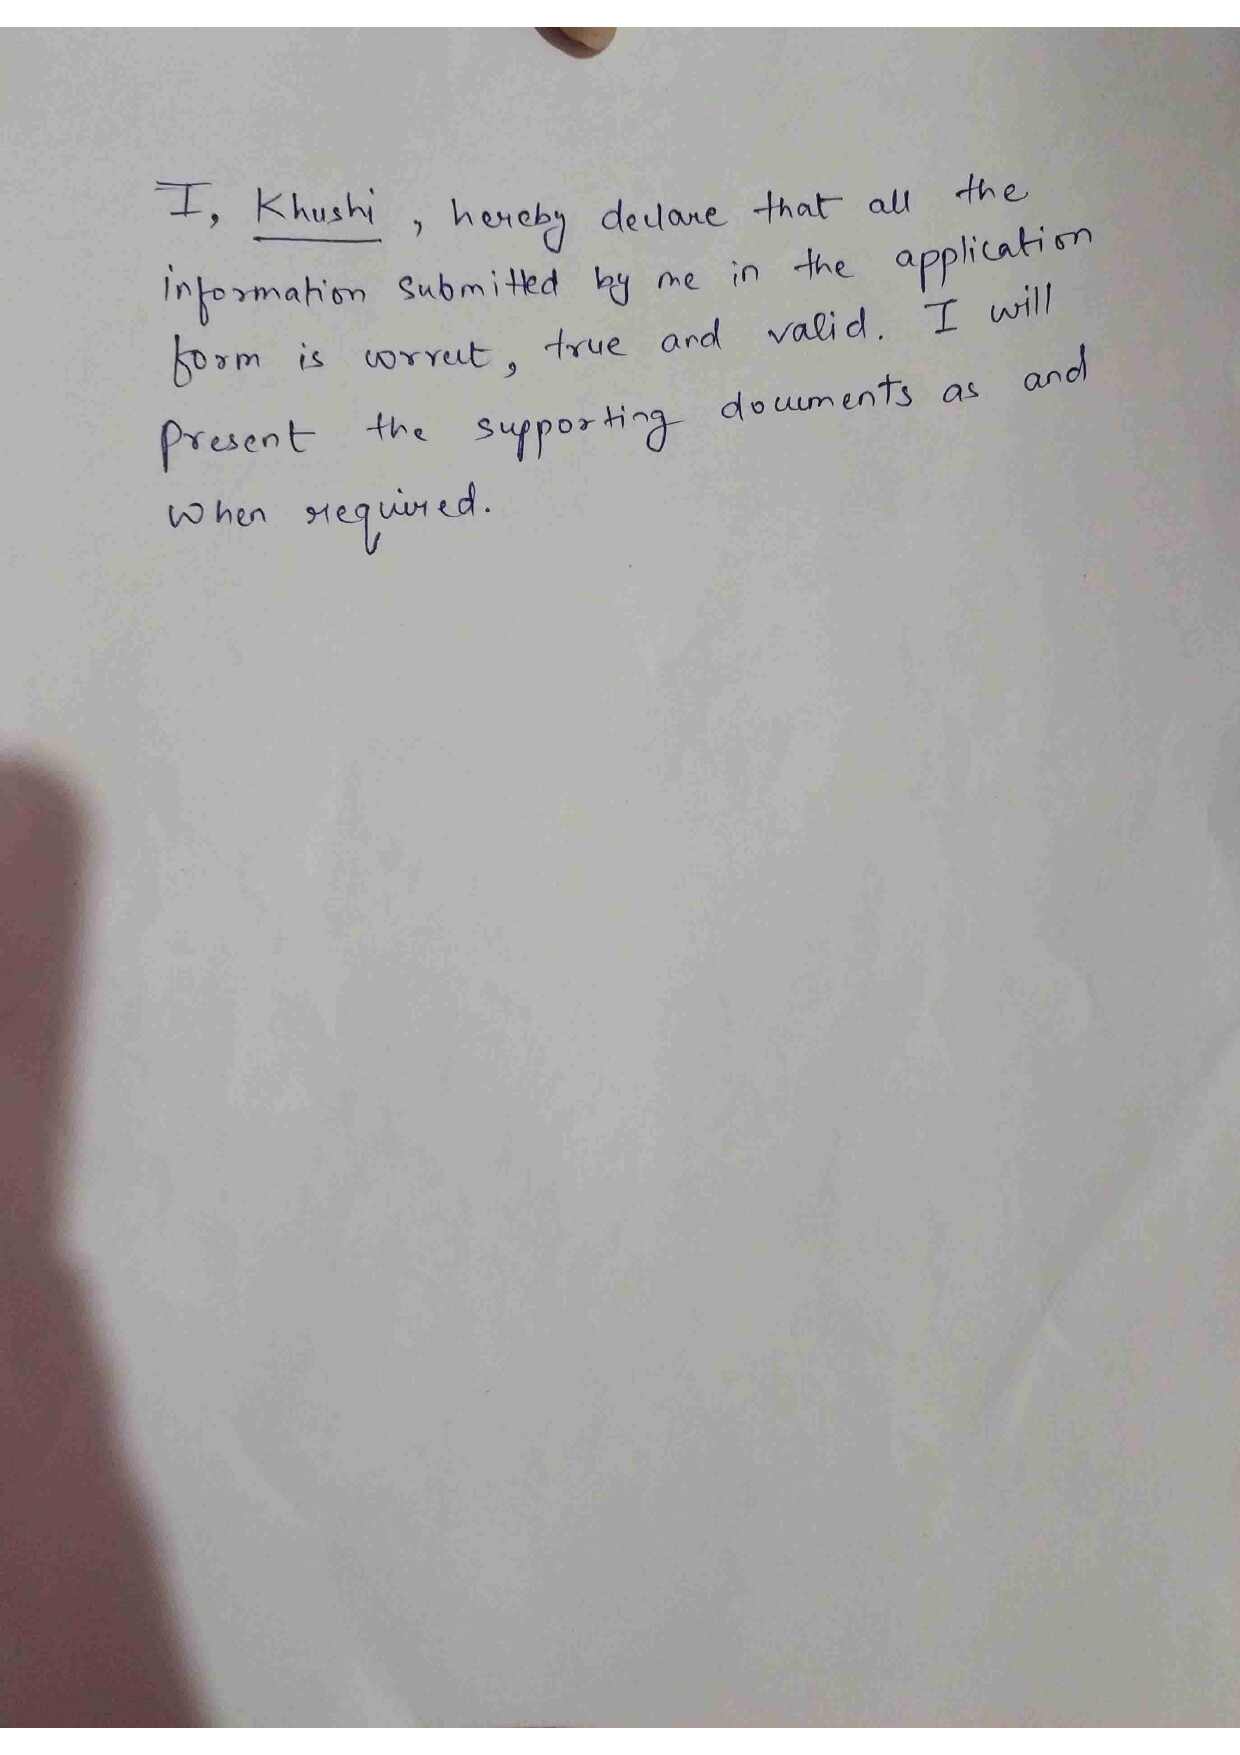 I, Khushi, hereby declare that all the
information submitted by me in the application
form is correct, true and valid. I will
present the supporting documents as and
when required.